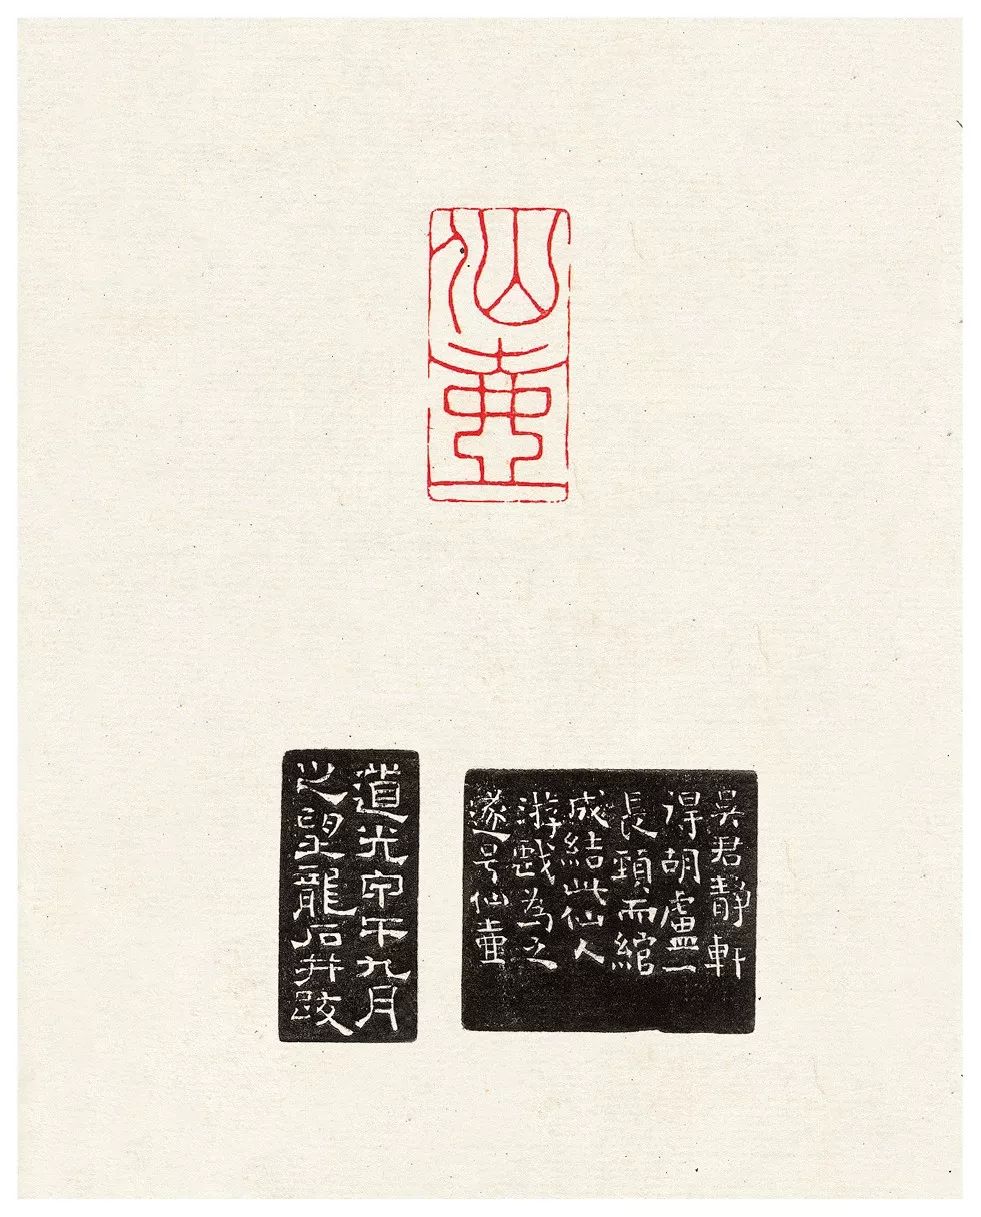 仙壺
吳君靜軒
得胡盧一
長頸而綰
成結此仙人
游戲為之
遂号仙壷
道光甲午九月
之望龍石并跋